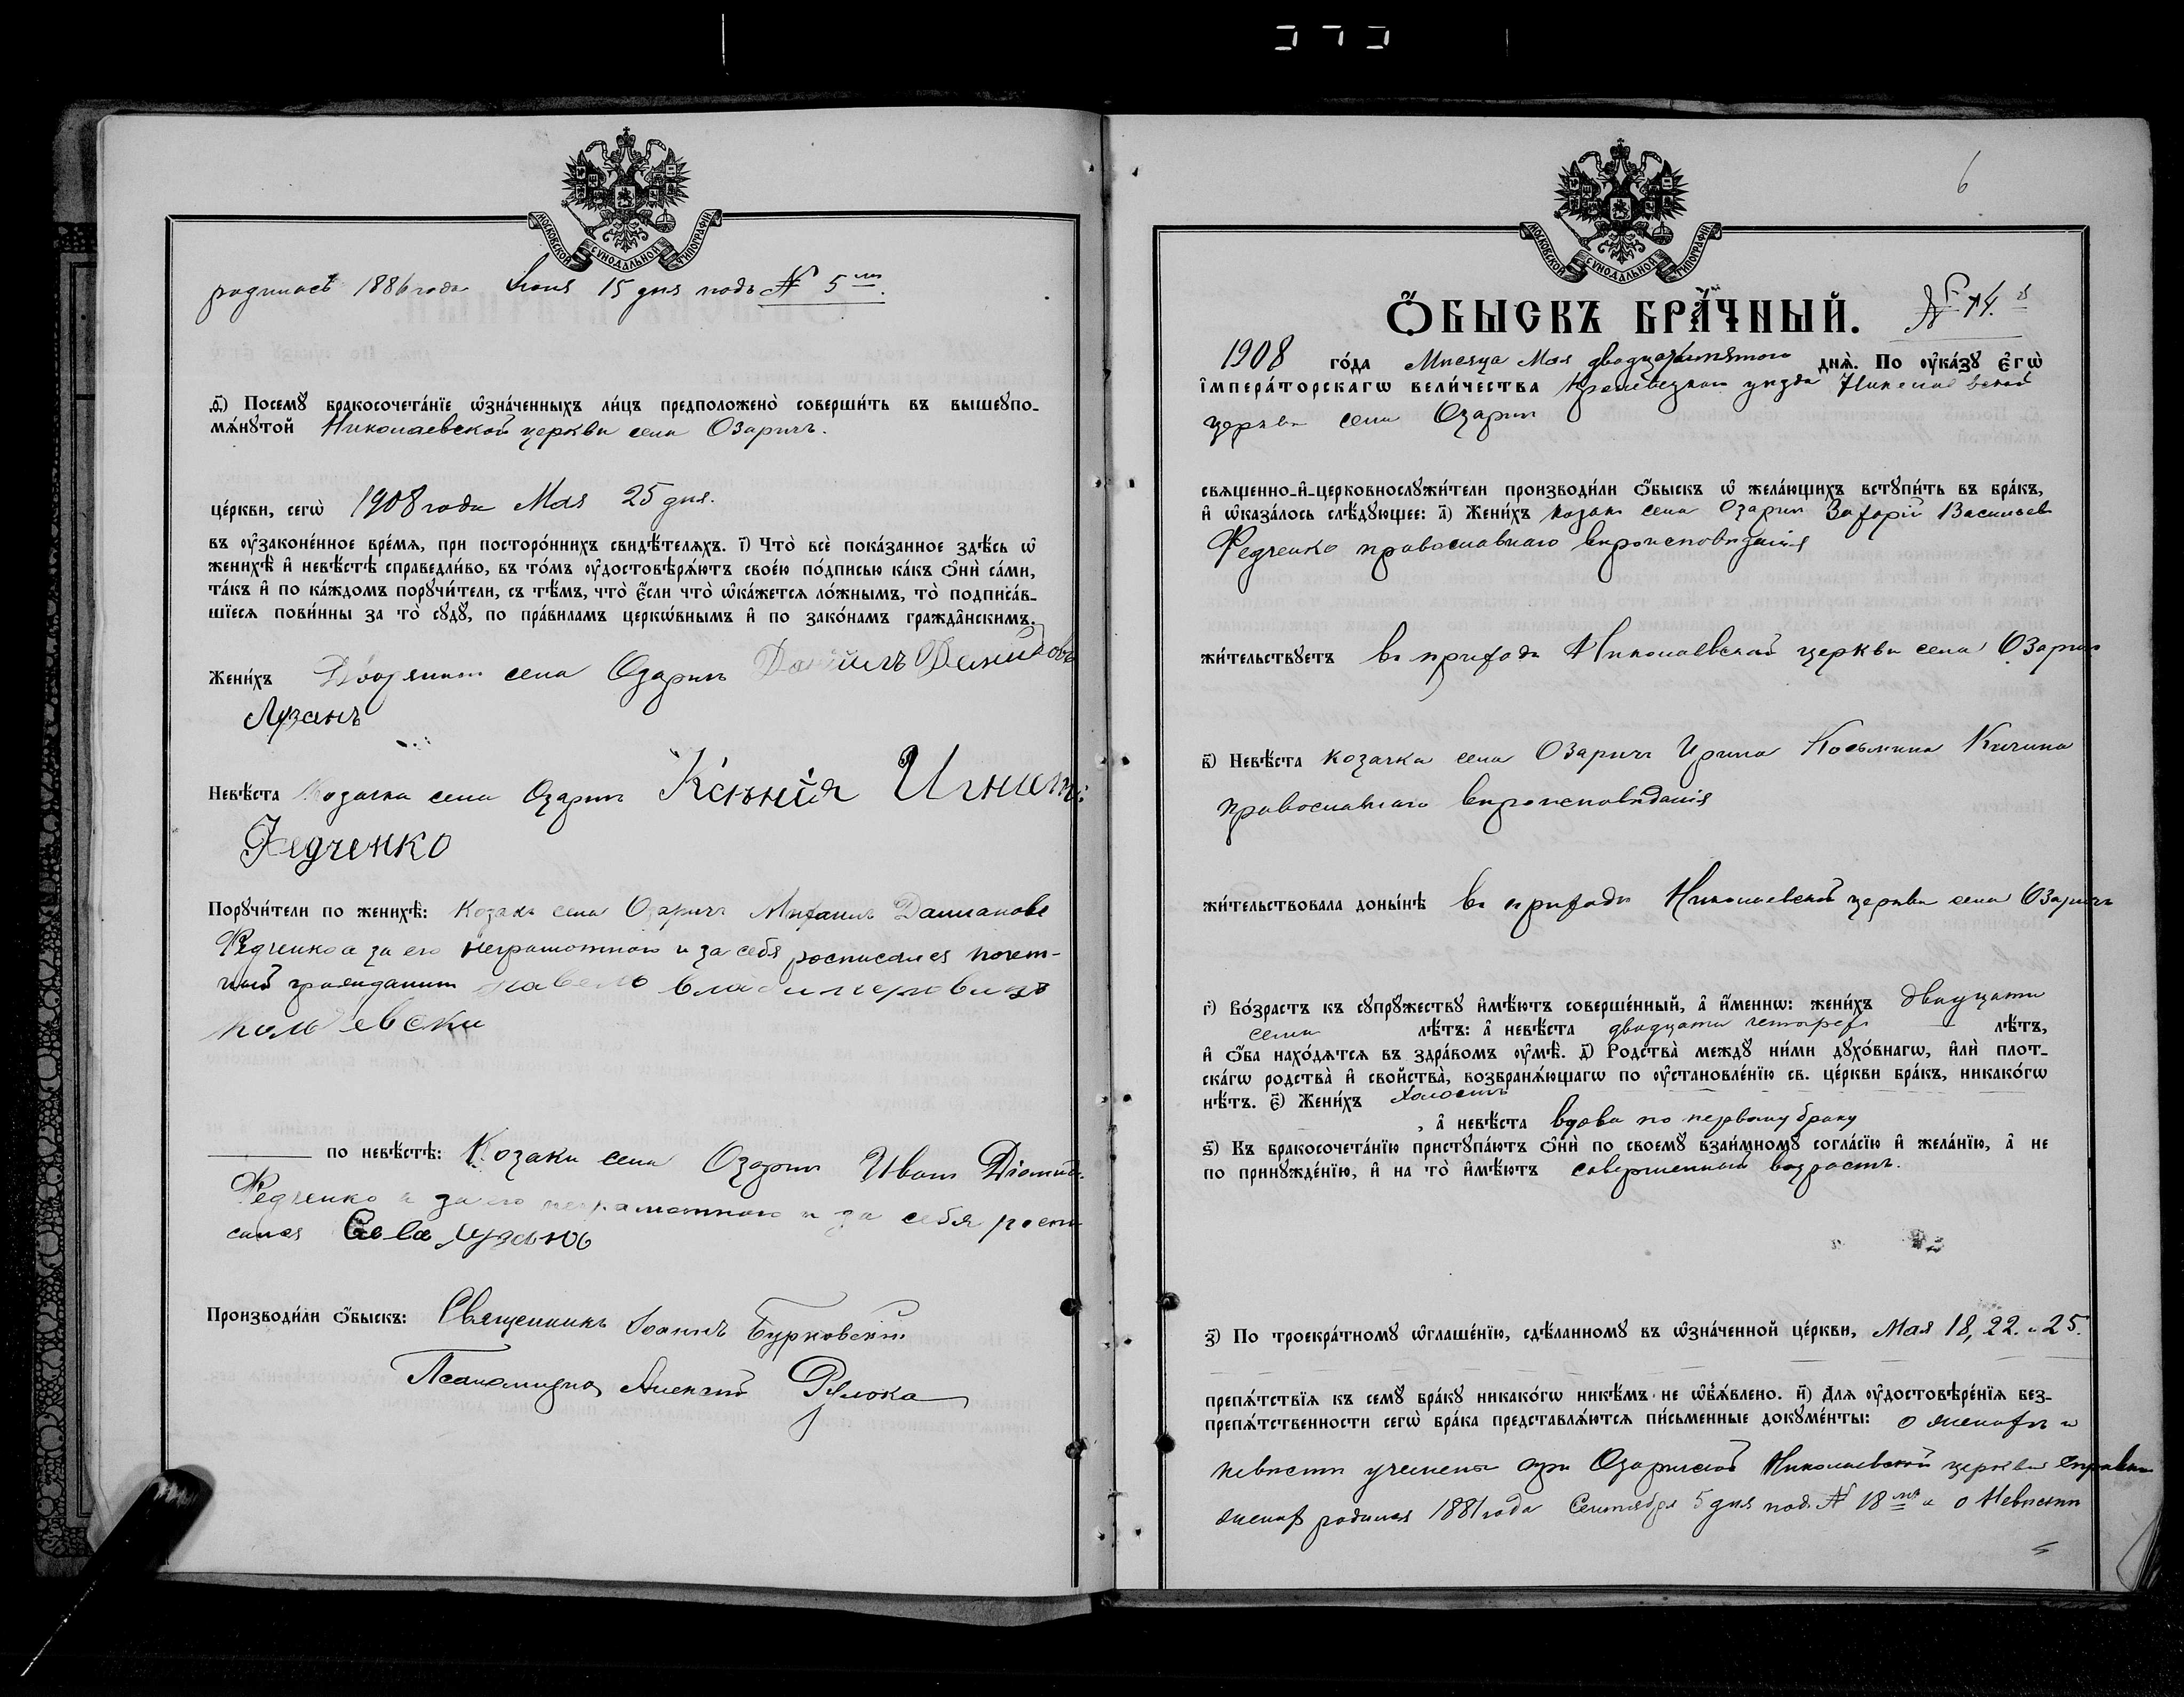 МОСКОВСКОЙ СѴНОДАЛЬНОЙ ТИПОГРАФІИ
родилась 1886 года Іюня 15 дня подъ № 5 мъ.
ѳ҃) Посемꙋ бракосочета́нїе ѡ҆зна́ченныхъ ли́цъ предположено̀ соверши́ть въ вышеꙋпо-
мѧ́нꙋтой Николаевской церкви села Озаричъ.
це́ркви, сегѡ̀ 1908 года Мая 25 дня.
въ ᲂу҆зако́ненное вре́мѧ, при посторо́ннихъ свидѣ́телѧхъ. і҃) Что̀ всѐ пока́занное здѣ́сь ѡ҆
женихѣ̀ и҆ невѣ́стѣ справедли́во, въ то́мъ ᲂу҆достовѣрѧ́ютъ свое́ю по́дписью ка́къ ѻ҆нѝ са́ми,
та́къ и҆ по ка́ждомъ порꙋчи́тели, съ тѣ́мъ, что̀ є҆́сли что̀ ѡ҆ка́жетсѧ ло́жнымъ, то̀ подписа́в-
шїесѧ пови́нны за то̀ сꙋдꙋ̀, по пра́виламъ церкѡ́внымъ и҆ по зако́намъ гражда̑нскимъ.
Жени́хъ Дворянинъ села Озаричъ Даніилъ Демидовъ
Лузанъ
Невѣ́ста Козачка села Озаричъ Ксенія Игнат
Федченко
Порꙋчи́тели по женихѣ̀: Козакъ села Озаричъ Михаилъ Даміановъ
Федченко а за его неграмотного и за себя росписался почет-
ный гражданинъ Павелъ Владимировичъ
по невѣ́стѣ: Козаки села Озаричъ Иванъ Діомид.
Федченко а за его неграмотного и за себя роспи
сался
Производи́ли ѻ҆́быскъ: Священникъ Іоаннъ Бурковскій
Псаломщикъ Алексій
МОСКОВСКОЙ СѴНОДАЛЬНОЙ ТИПОГРАФІИ
6
Ѻ҆́БЫСКЪ БРА́ЧНЫЙ. № 14. й
1908 го́да Мѣсяца Мая двадцатьпятого днѧ̀. По ᲂу҆ка́зꙋ є҆гѡ̀
і҆мпера́торскагѡ вели́чества Кролевецкаго уѣзда Николаевской
церкви села Озаричъ
свѧщенно-и҆-церковнослꙋжи́тели производи́ли ѻ҆́быскъ ѡ҆ жела́ющихъ встꙋпи́ть въ бра́къ,
и҆ ѡ҆каза́лось слѣ́дꙋющее: а҃) Жени́хъ козакъ села Озаричъ Захарій Васильевъ
Федченко православнаго вѣроисповѣданія
жи́тельствꙋетъ въ приходѣ Николаевской церкви села Озаричъ
в҃) Невѣ́ста козачка села Озаричъ Ирина Косьмина Кичина
православнаго вѣроисповѣданія
жи́тельствовала доны́нѣ въ приходѣ Николаевской церкви села Озаричъ
г҃) Во́зрастъ къ сꙋпрꙋ́жествꙋ и҆мѣ́ютъ соверше́нный, а҆ и҆́меннѡ: жени́хъ двадцати
семи лѣ́тъ: а҆ невѣ́ста двадцати четырехъ лѣ́тъ,
и҆ ѻ҆́ба нахо́дѧтсѧ въ здра́вомъ ᲂу҆мѣ̀. д҃) Родства̀ междꙋ̀ ни́ми дꙋхо́внагѡ, и҆лѝ плот-
ска́гѡ родства̀ и҆ свойства̀, возбранѧ́ющагѡ по ᲂу҆становле́нїю св. це́ркви бра́къ, никако́гѡ
нѣ́тъ. є҃) Жени́хъ холостъ
, а҆ невѣ́ста вдова по первому браку
ѕ҃) Къ бракосочета́нїю пристꙋпа́ютъ ѻ҆нѝ по своемꙋ̀ взаи́мномꙋ согла́сїю и҆ жела́нїю, а҆ не
по принꙋжде́нїю, и҆ на то̀ и҆мѣ́ютъ совершенный возростъ.
з҃) По троекра́тномꙋ ѡ҆глаше́нїю, сдѣ́ланномꙋ въ ѡ҆зна́ченной це́ркви, Мая 18, 22. и 25.
препѧ́тствїѧ къ семꙋ̀ бра́кꙋ никако́гѡ никѣ́мъ не ѡ҆б̾ѧ́влено. и҃) Длѧ ᲂу҆достовѣре́нїѧ без-
препѧ́тственности сегѡ̀ бра́ка представлѧ́ютсѧ пи́сьменные докꙋме́нты: о женихѣ и
невѣстѣ учинена при Озаричской Николаевской церкви справка
женихъ родился 1881 года Сентября 5 дня подъ № 18 мъ и о Невѣстѣ